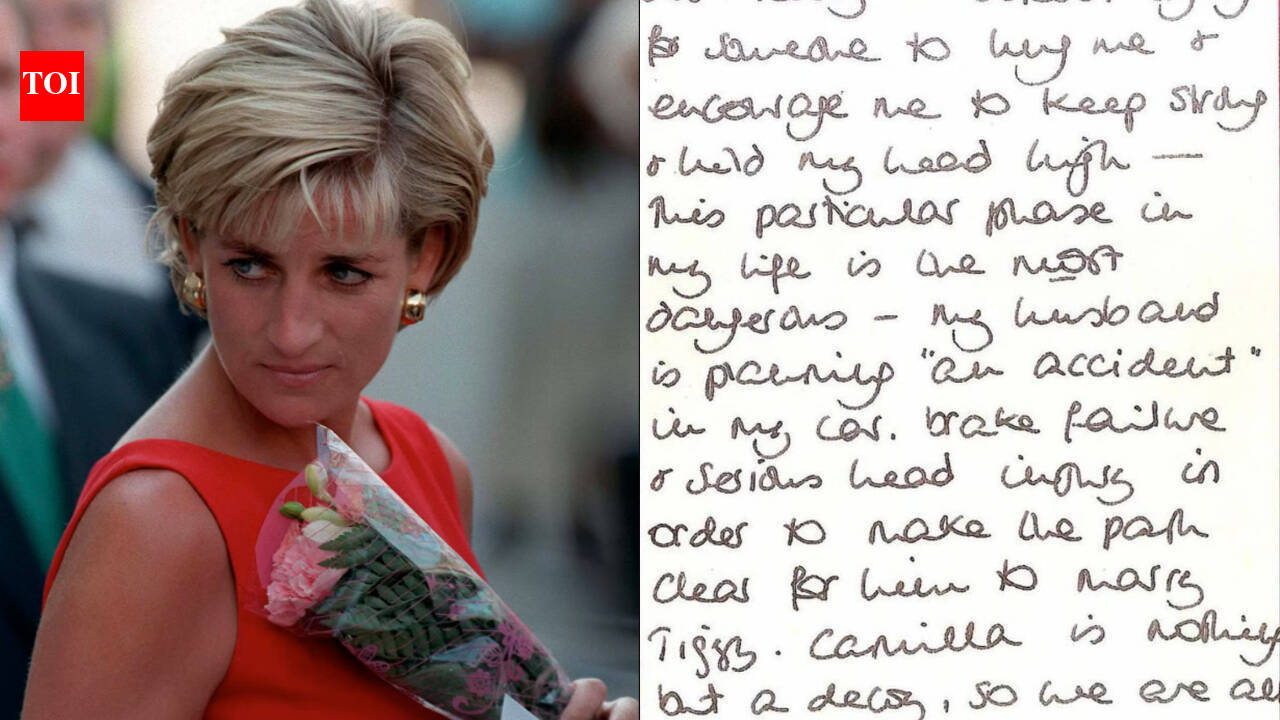 TOI
for someone to hug me &
encourage me to keep strong
& hold my head high —
This particular phase in
my life is the most
dangerous – my husband
is planning "an accident"
in my car. brake failure
& serious head injury in
order to make the path
clear for him to marry
Tiggy. Camilla is nothing
but a decoy, so we are